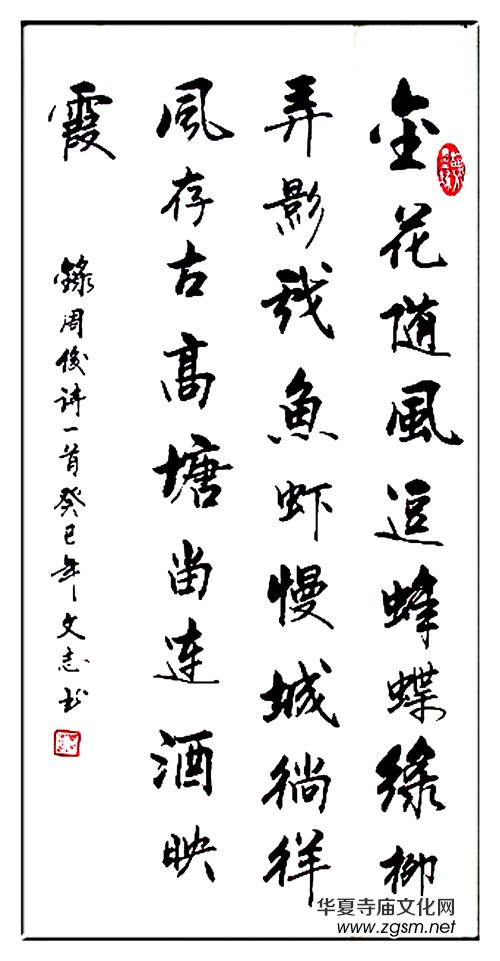 金花随風逗蜂蝶綠柳
弄影戏魚虾慢城徜徉
風存古高塘畄连酒映
霞
錄周俊詩一首癸巳年文志书
华夏寺庙文化网
www.zgsm.net